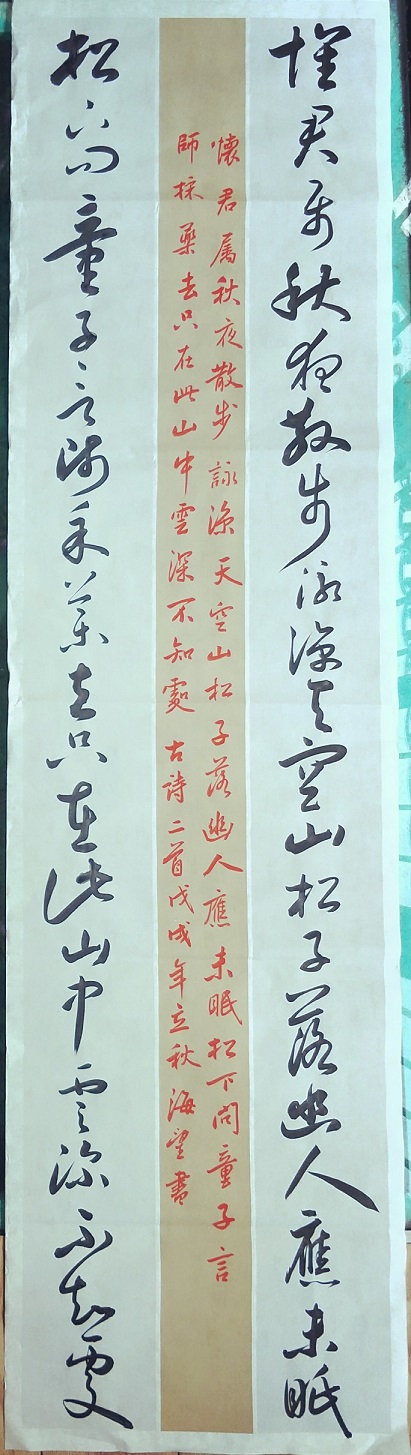 懷君属秋夜散步詠涼天空山松子落幽人應未眠
懷君属秋夜散步詠涼天空山松子落幽人應未眠松下問童子言
師採藥去只在此山中雲深不知處古詩二首戊戌年立秋海望書
松下問童子言師采藥去只在此山中雲深不知處